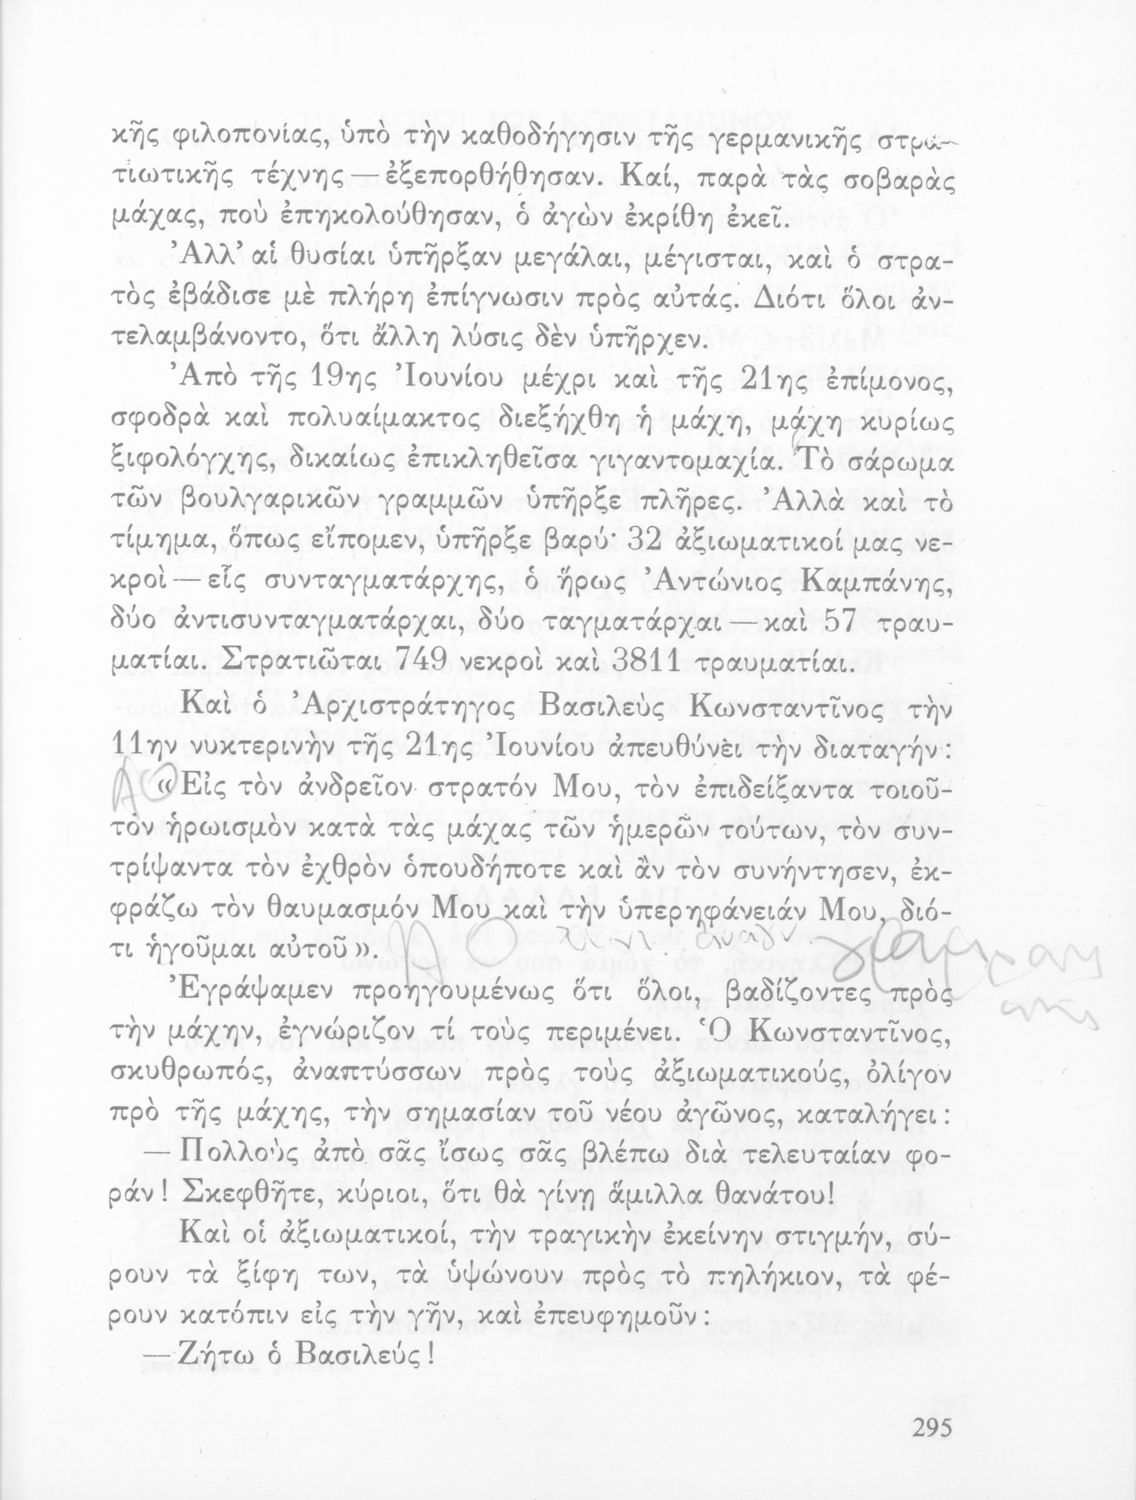 κῆς φιλοπονίας, ὑπὸ τὴν καθοδήγησιν τῆς γερμανικῆς στρα-
τιωτικῆς τέχνης — ἐξεπορθήθησαν. Καί, παρὰ τὰς σοβαρὰς
μάχας, ποὺ ἐπηκολούθησαν, ὁ ἀγὼν ἐκρίθη ἐκεῖ.
Ἀλλ’ αἱ θυσίαι ὑπῆρξαν μεγάλαι, μέγισται, καὶ ὁ στρα-
τὸς ἐβάδισε μὲ πλήρη ἐπίγνωσιν πρὸς αὐτάς. Διότι ὅλοι ἀν-
τελαμβάνοντο, ὅτι ἄλλη λύσις δὲν ὑπῆρχεν.
Ἀπὸ τῆς 19ης Ἰουνίου μέχρι καὶ τῆς 21ης ἐπίμονος,
σφοδρὰ καὶ πολυαίμακτος διεξήχθη ἡ μάχη, μάχη κυρίως
ξιφολόγχης, δικαίως ἐπικληθεῖσα γιγαντομαχία. Τὸ σάρωμα
τῶν βουλγαρικῶν γραμμῶν ὑπῆρξε πλῆρες. Ἀλλὰ καὶ τὸ
τίμημα, ὅπως εἴπομεν, ὑπῆρξε βαρύ· 32 ἀξιωματικοί μας νε-
κροὶ — εἷς συνταγματάρχης, ὁ ἥρως Ἀντώνιος Καμπάνης,
δύο ἀντισυνταγματάρχαι, δύο ταγματάρχαι — καὶ 57 τραυ-
ματίαι. Στρατιῶται 749 νεκροὶ καὶ 3811 τραυματίαι.
Καὶ ὁ Ἀρχιστράτηγος Βασιλεὺς Κωνσταντῖνος τὴν
11ην νυκτερινὴν τῆς 21ης Ἰουνίου ἀπευθύνει τὴν διαταγήν :
«Εἰς τὸν ἀνδρεῖον στρατόν Μου, τὸν ἐπιδείξαντα τοιοῦ-
τον ἡρωισμὸν κατὰ τὰς μάχας τῶν ἡμερῶν τούτων, τὸν συν-
τρίψαντα τὸν ἐχθρὸν ὁπουδήποτε καὶ ἂν τὸν συνήντησεν, ἐκ-
φράζω τὸν θαυμασμόν Μου καὶ τὴν ὑπερηφάνειάν Μου, διό-
τι ἡγοῦμαι αὐτοῦ».
Ἐγράψαμεν προηγουμένως ὅτι ὅλοι, βαδίζοντες πρὸς
τὴν μάχην, ἐγνώριζον τί τοὺς περιμένει. Ὁ Κωνσταντῖνος,
σκυθρωπός, ἀναπτύσσων πρὸς τοὺς ἀξιωματικούς, ὀλίγον
πρὸ τῆς μάχης, τὴν σημασίαν τοῦ νέου ἀγῶνος, καταλήγει :
— Πολλοὺς ἀπὸ σᾶς ἴσως σᾶς βλέπω διὰ τελευταίαν φο-
ράν ! Σκεφθῆτε, κύριοι, ὅτι θὰ γίνῃ ἅμιλλα θανάτου!
Καὶ οἱ ἀξιωματικοί, τὴν τραγικὴν ἐκείνην στιγμήν, σύ-
ρουν τὰ ξίφη των, τὰ ὑψώνουν πρὸς τὸ πηλήκιον, τὰ φέ-
ρουν κατόπιν εἰς τὴν γῆν, καὶ ἐπευφημοῦν :
— Ζήτω ὁ Βασιλεύς !
295